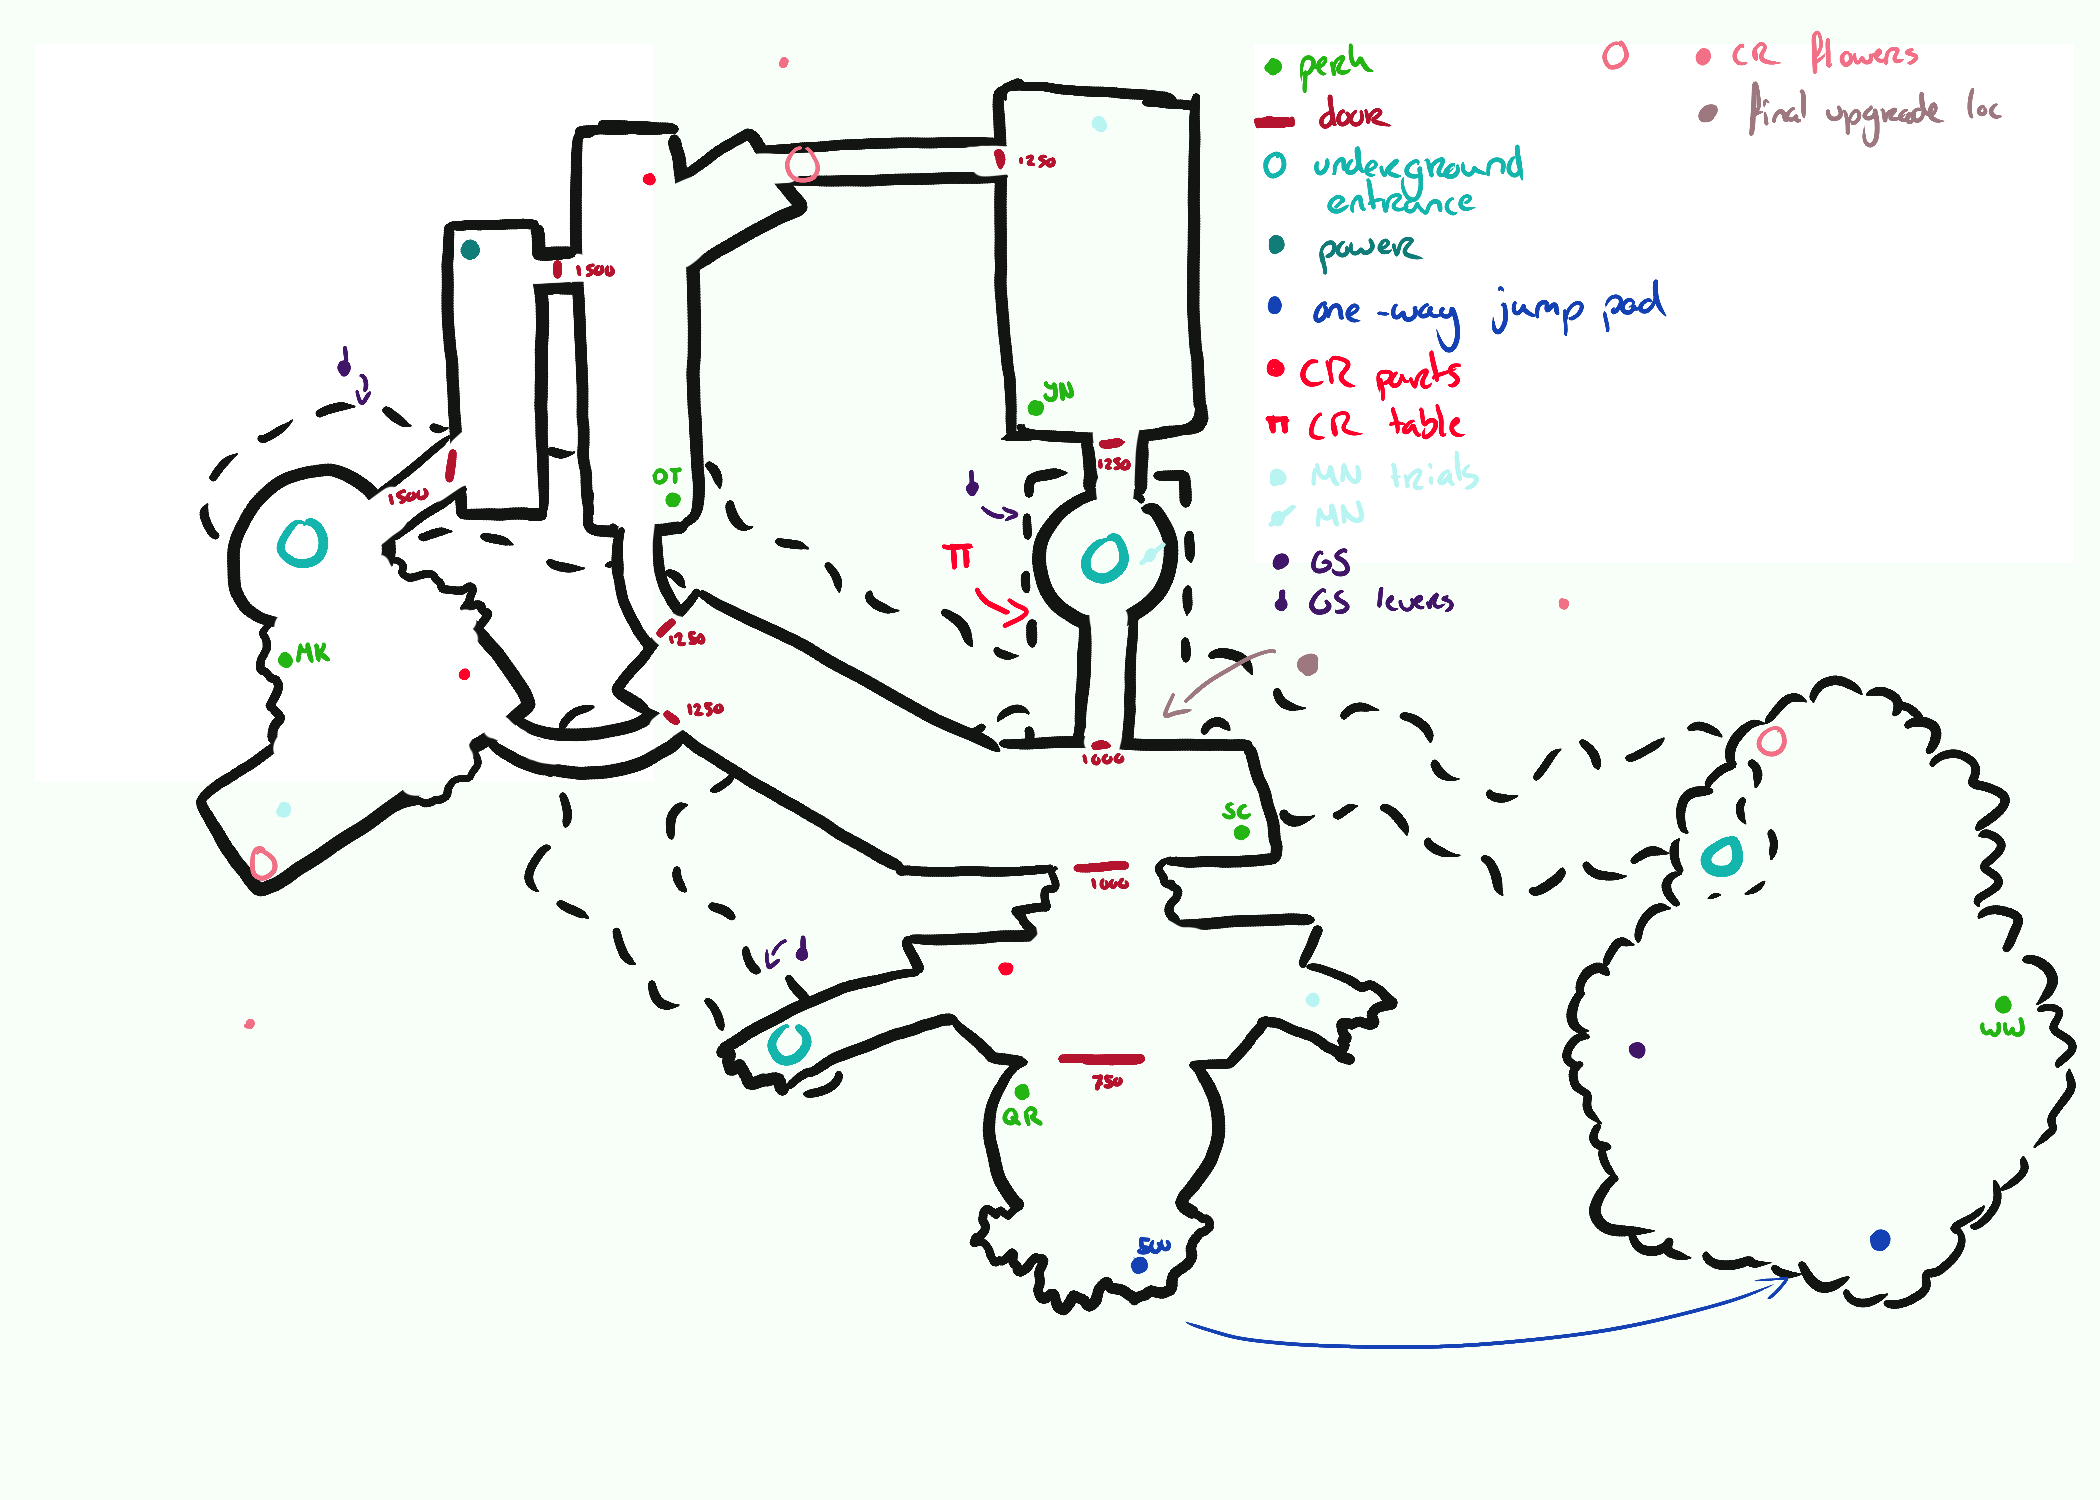 perk
door
underground
entrance
power
one-way jump pad
CR parts
CR table
MN trials
MN
GS
GS levers
CR flowers
final upgrade loc
1250
1500
YN
1250
OT
1500
1250
MK
1250
1000
SC
1000
WW
750
QR
500